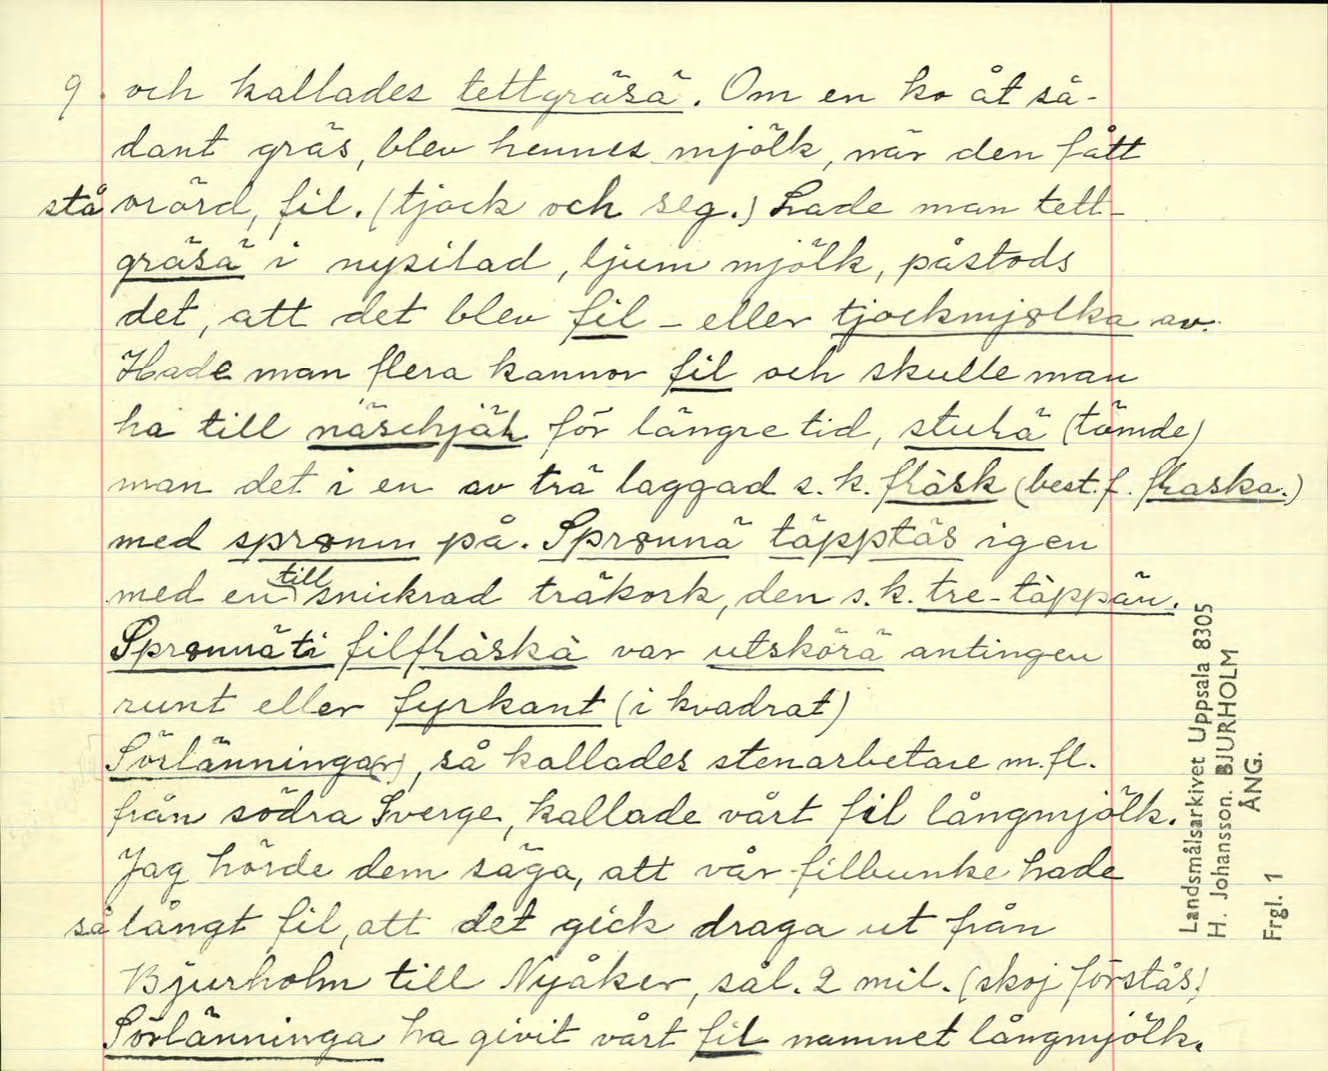 9. och kallades tettgräsä. Om en ko åt så-
dant gräs, blev hennes mjölk, när den fått
stå orörd, fil. (tjock och seg.) Lade man tett-
gräsä i nysilad, ljum mjölk, påstods
det, att det blev fil - eller tjockmjølka av.
Hade man flera kannor fil och skulle man
ha till näschjäh för längre tid, stuhä (tömde)
man det i en av trä laggad s.k. flåsk (best.f. flaska.)
med sprønn på. Sprønnä täpptäs igen
med en tillsnickrad träkork, den s.k. tre-täppän.
Sprønnä ti filflåskå var utskörä antingen
runt eller fyrkant (i kvadrat)
Sörlänninga(r), så kallades stenarbetare m.fl.
från södra Sverge, kallade vårt fil långmjölk.
Jag hörde dem säga, att vår filbunke hade
så långt fil, att det gick draga ut från
Bjurholm till Nyåker, sål. 2 mil. (skoj förstås)
Sörlänninga ha givit vårt fil namnet långmjölk.
Landsmålsarkivet Uppsala 8305
H. Johansson. BJURHOLM
ÅNG.
Frgl. 1